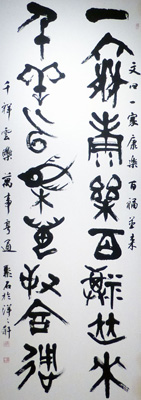 文曰一家康樂百福並來
一家康樂百福並來
千祥雲集萬事亨通
千祥雲集萬事亨通